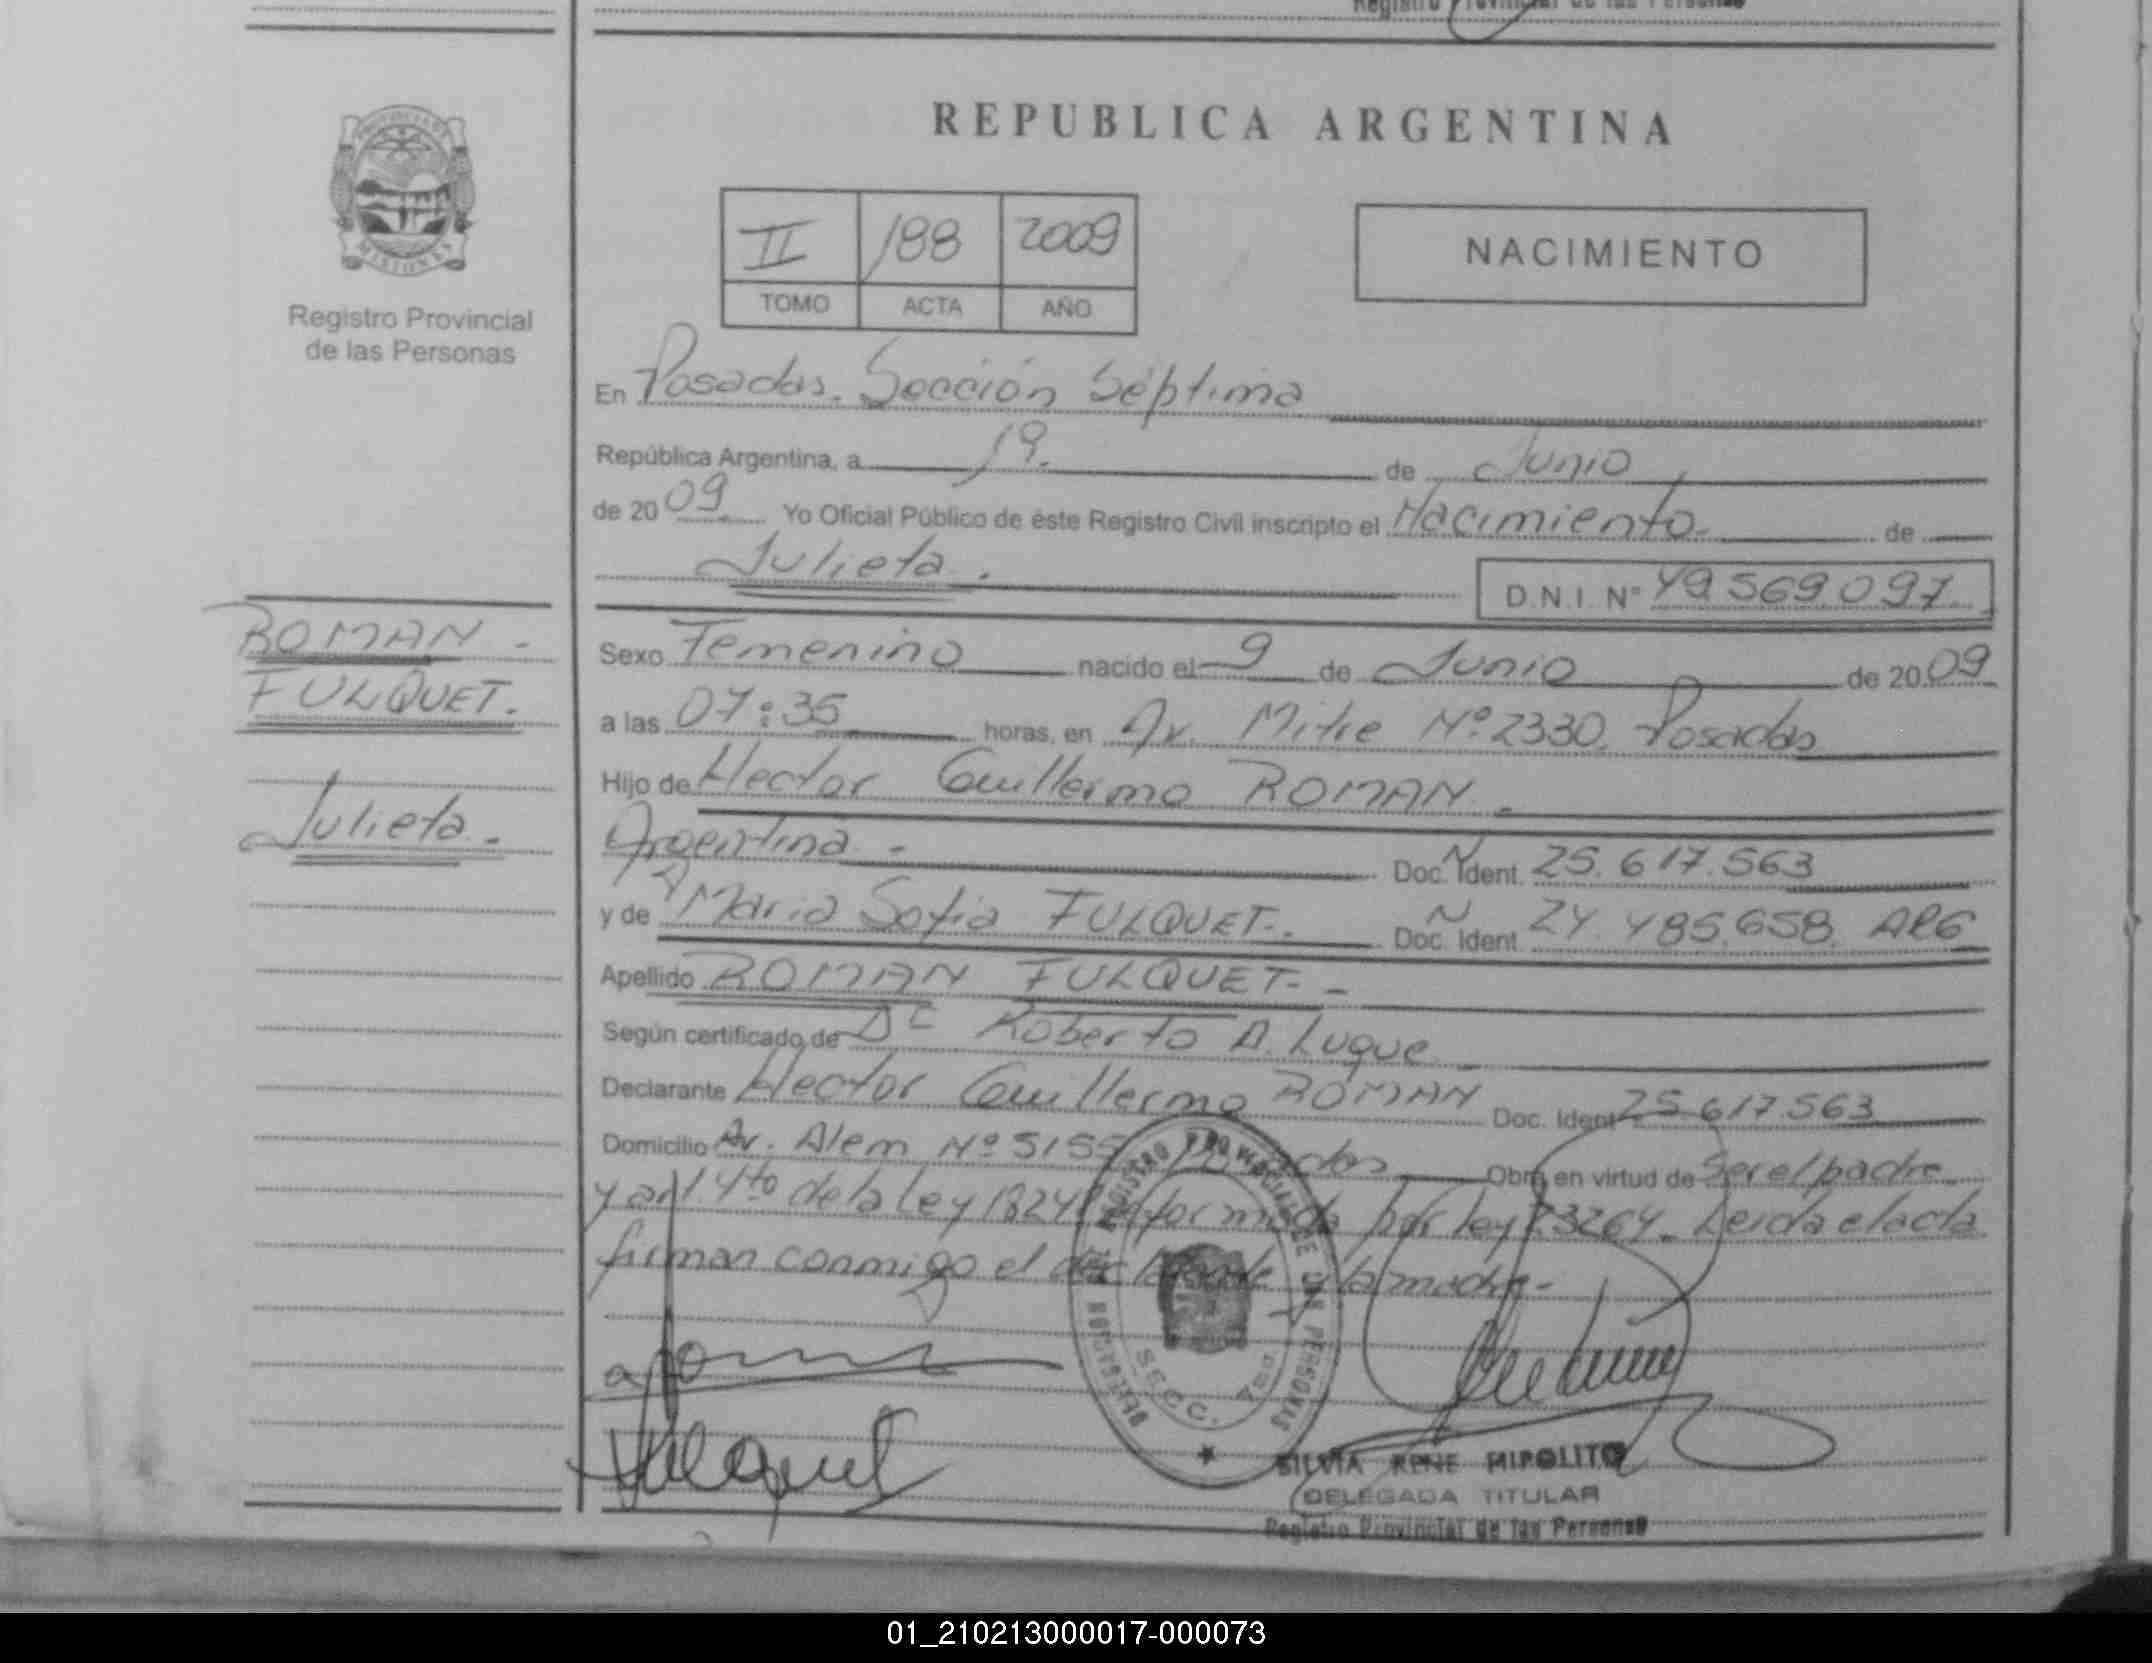 Registro Provincial de las Personas
REPUBLICA ARGENTINA
PROVINCIA DE
MISIONES
Registro Provincial
de las Personas
II 188 2009
TOMO ACTA AÑO
NACIMIENTO
En Posadas. Sección Séptima
República Argentina, a 19. de Junio
de 2009 Yo Oficial Público de éste Registro Civil inscripto el Nacimiento. de
Julieta. D.N.I. Nº 49.569.097.
ROMAN -
FULQUET.
Julieta.-
Sexo Femenino nacido el 9 de Junio de 2009
a las 07:35 horas, en Av. Mitre Nº 2330, Posadas
Hijo de Hector Guillermo ROMAN.
Argentina.- Doc. Ident. 25.617.563
y de Maria Sofia FULQUET.. Doc. Ident. 24.485.658. ARG
Apellido ROMAN FULQUET.-
Según certificado de Dr Roberto A. Luque
Declarante Hector Guillermo ROMAN Doc. Ident 25.617.563
Domicilio Av. Alem Nº 5155 Obra en virtud de ser el padre
y art. 4to de la Ley 18248 por ley 23264. Leida el acta
firman conmigo el declarante y la madre.-
REGISTRO PROVINCIAL DE LAS PERSONAS
SECC. 7ma
Fulquet
SILVIA RENE HIPOLITO
DELEGADA TITULAR
Registro Provincial de las Personas
01_210213000017-000073